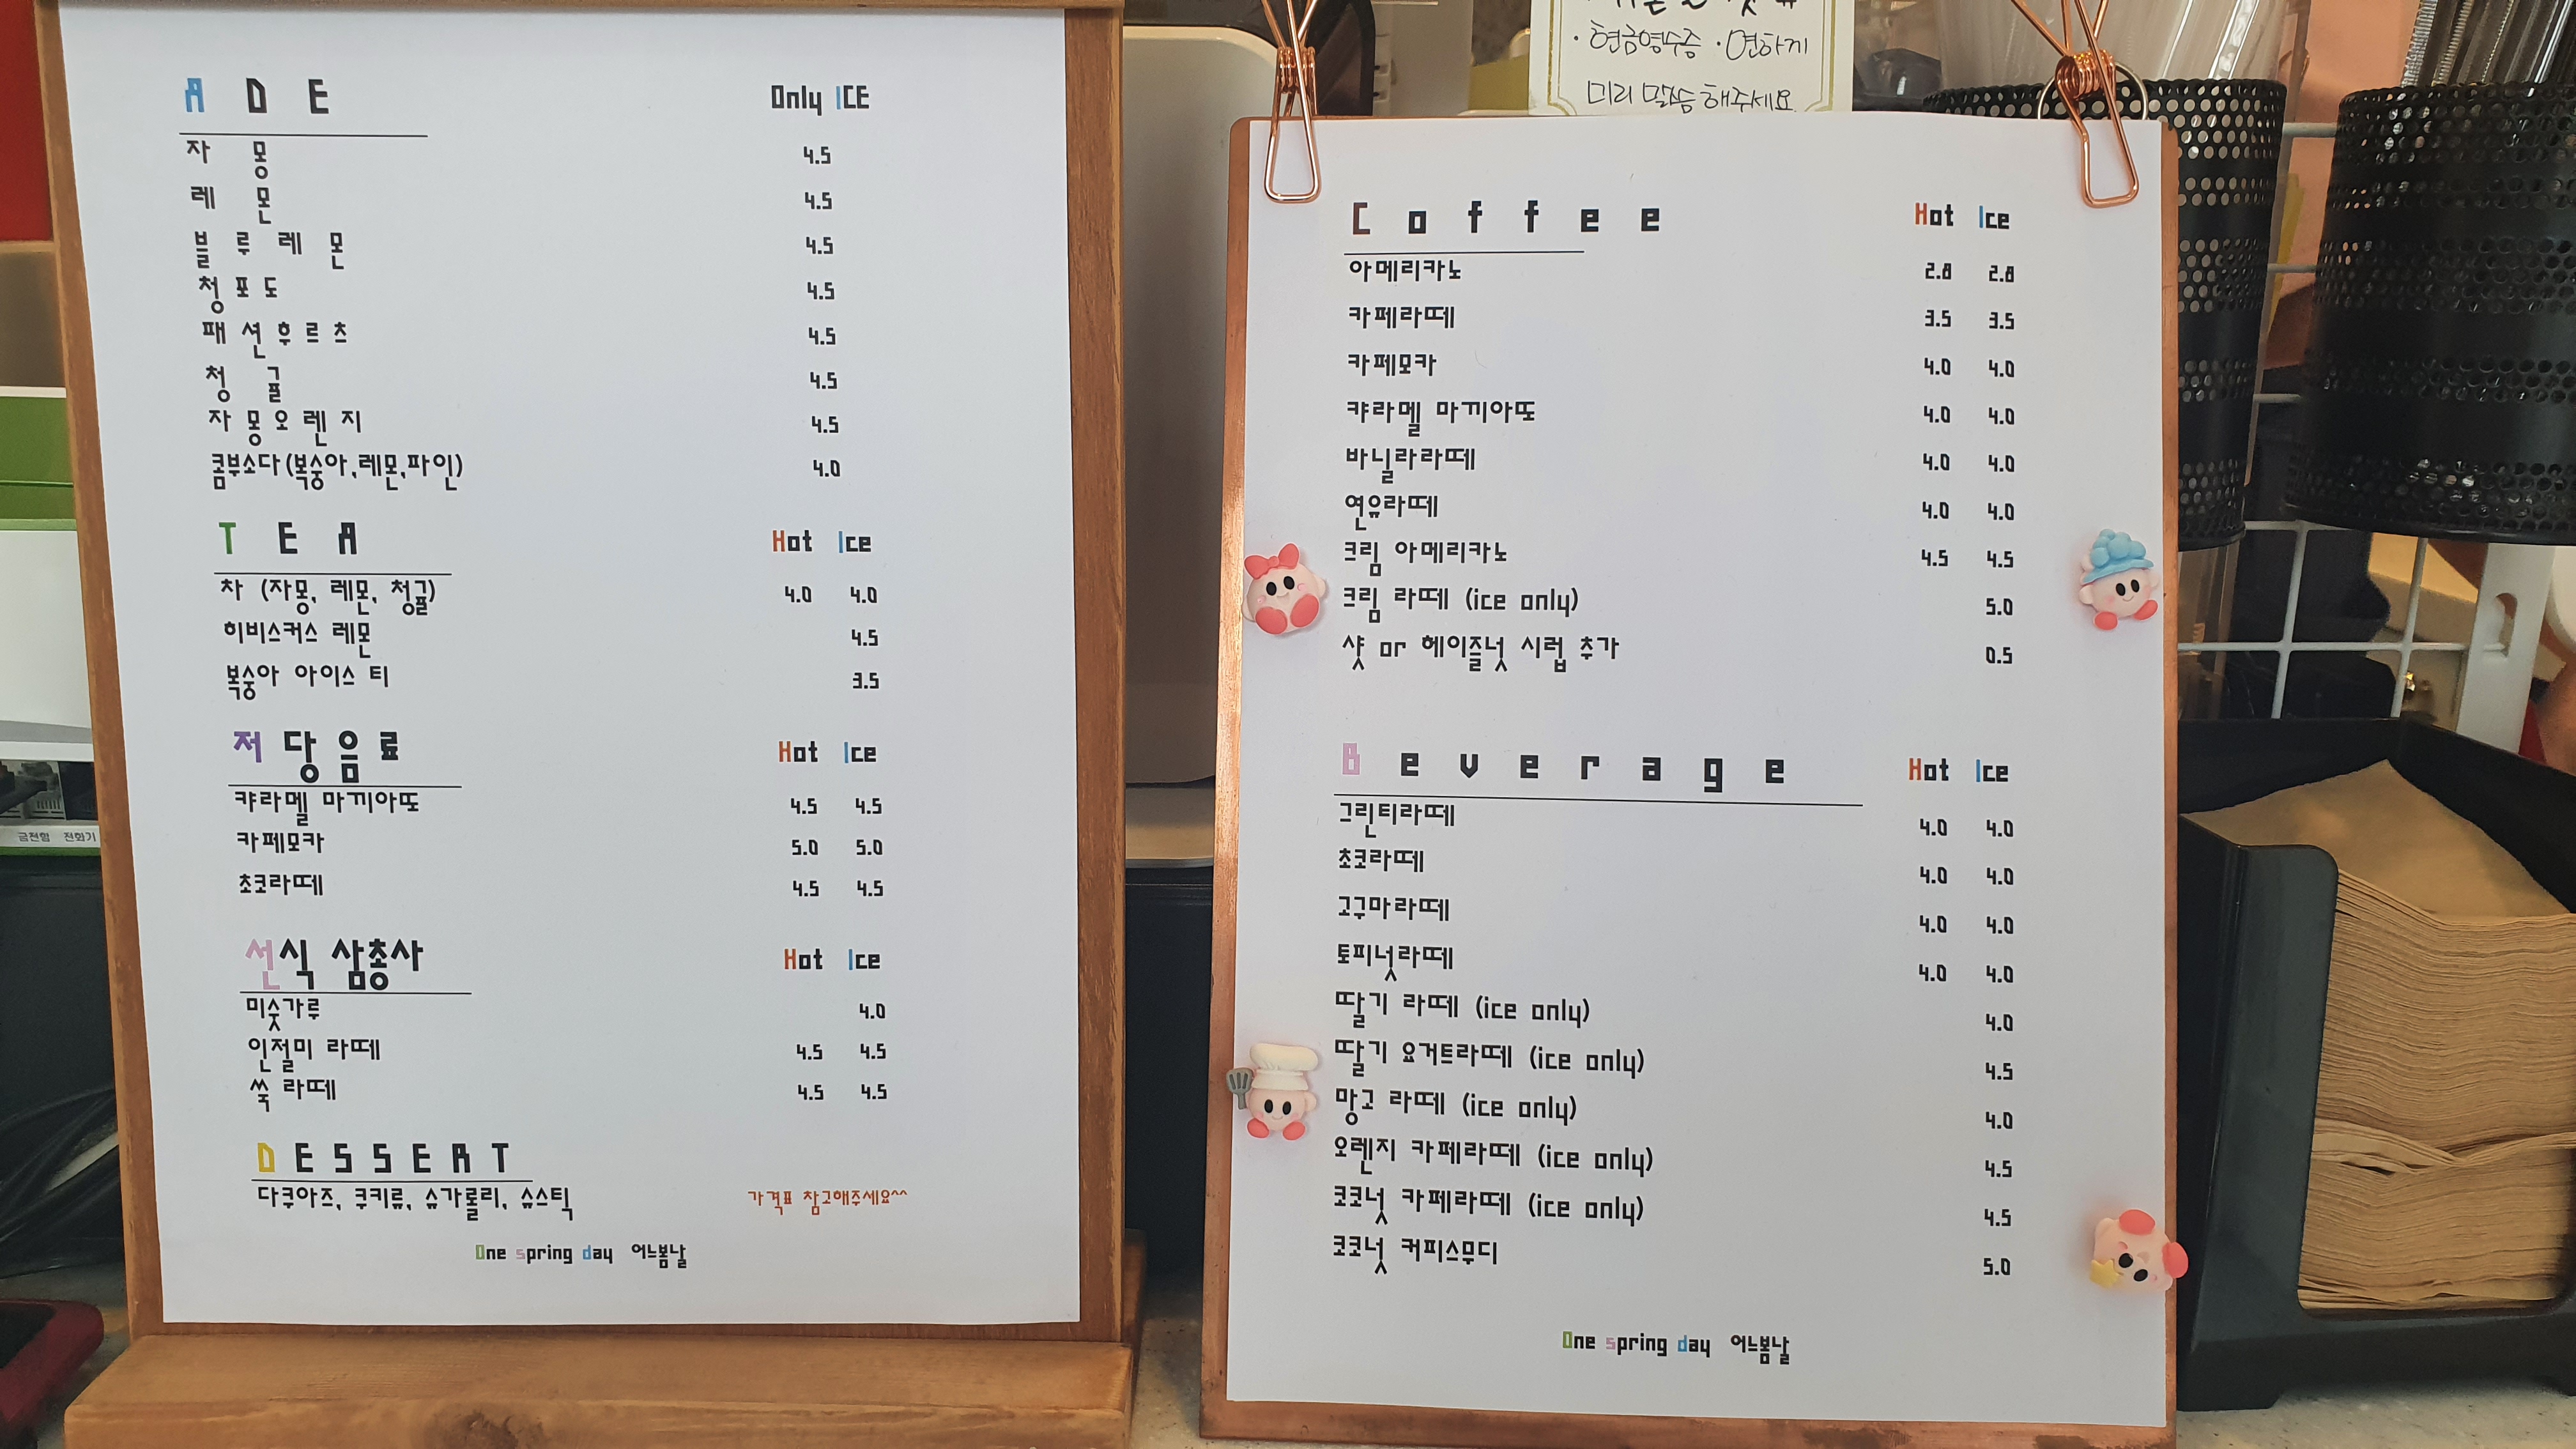 A D E Only ICE
자 몽 4.5
레 몬 4.5
블 루 레 몬 4.5
청 포 도 4.5
패 션 후 르 츠 4.5
청 귤 4.5
자 몽 오 렌 지 4.5
콤부소다(복숭아,레몬,파인) 4.0
T E A Hot Ice
차 (자몽, 레몬, 청귤) 4.0 4.0
히비스커스 레몬 4.5
복숭아 아이스 티 3.5
저 당 음 료 Hot Ice
캬라멜 마끼아또 4.5 4.5
카페모카 5.0 5.0
초코라떼 4.5 4.5
선식 삼총사 Hot Ice
미숫가루 4.0
인절미 라떼 4.5 4.5
쑥 라떼 4.5 4.5
D E S S E R T
다쿠아즈, 쿠키류, 슈가롤리, 슈스틱 가격표 참고해주세요^^
One spring day 어느봄날
· 현금영수증 · 연하게
미리 말씀해주세요
C o f f e e Hot Ice
아메리카노 2.8 2.8
카페라떼 3.5 3.5
카페모카 4.0 4.0
캬라멜 마끼아또 4.0 4.0
바닐라라떼 4.0 4.0
연유라떼 4.0 4.0
크림 아메리카노 4.5 4.5
크림 라떼 (ice only) 5.0
샷 or 헤이즐넛 시럽 추가 0.5
B e v e r a g e Hot Ice
그린티라떼 4.0 4.0
초코라떼 4.0 4.0
고구마라떼 4.0 4.0
토피넛라떼 4.0 4.0
딸기 라떼 (ice only) 4.0
딸기 요거트라떼 (ice only) 4.5
망고 라떼 (ice only) 4.0
오렌지 카페라떼 (ice only) 4.5
코코넛 카페라떼 (ice only) 4.5
코코넛 커피스무디 5.0
One spring day 어느봄날
금전함 전화기